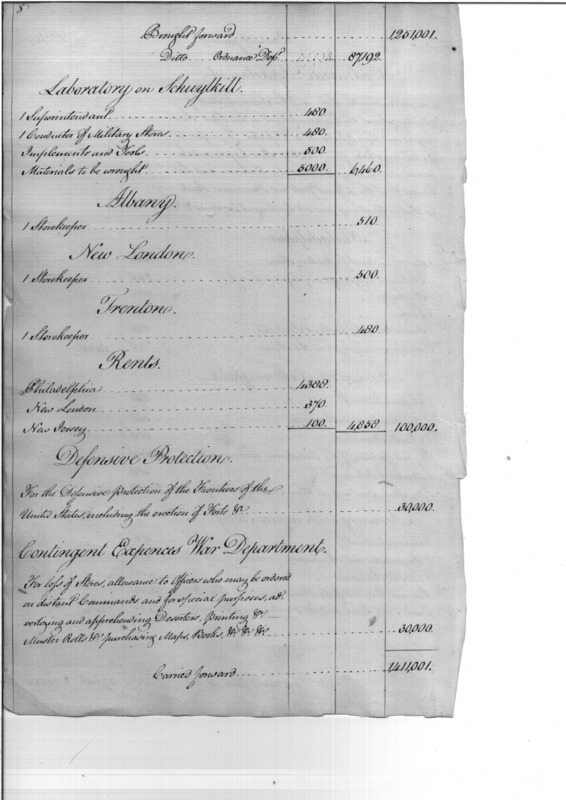 8
Brought forward 1,251,001.
Ditto Ordnance Dept 87,192.
Laboratory on Schuylkill.
1 Superintendant 480
1 Conductor of Military Stores 480.
Implements and Tools 500
Materials to be wrought 5000. 6,460.
Albany.
1 Storekeeper 510.
New London.
1 Storekeeper 500.
Trenton.
1 Storekeeper 480.
Rents.
Philadelphia 4388.
New London 370.
New Jersey 100. 4,858 100,000.
Defensive Protection.
For the Defensive protection of the Frontiers of the
United States, including the erection of Forts &c 30,000.
Contingent Expences War Department.
For loss of Stores, allowance to Officers who may be ordered
on distant Commands and for special purposes, ad-
vertizing and apprehending Deserters, printing &c
Muster Rolls &c purchasing Maps, Books, &c &c &c 30,000.
Carried forward 1,411,001.